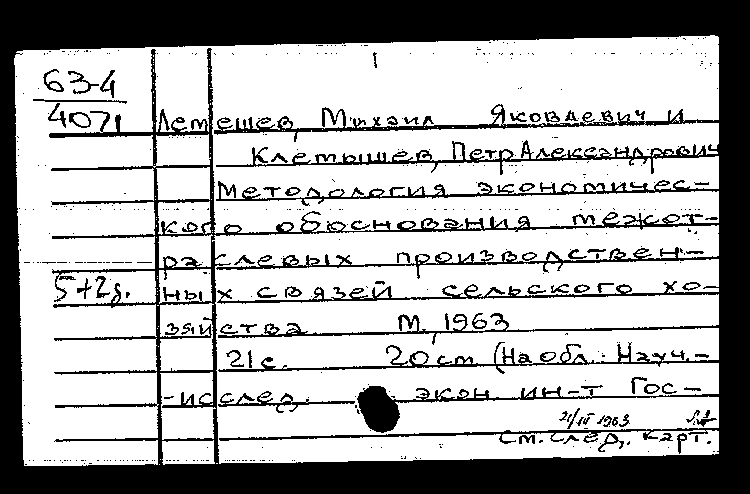 63-4
4071
Лемешев, Михаил Яковлевич и
Клемышев, Петр Александрович
Методология экономичес-
кого обоснования межот-
раслевых производствен-
5+2д.
ных связей сельского хо-
зяйства М., 1963
21 с. 20 см (На обл.: Науч.-
-исслед. экон. ин-т Гос-
21/III 1963
См. след. карт.